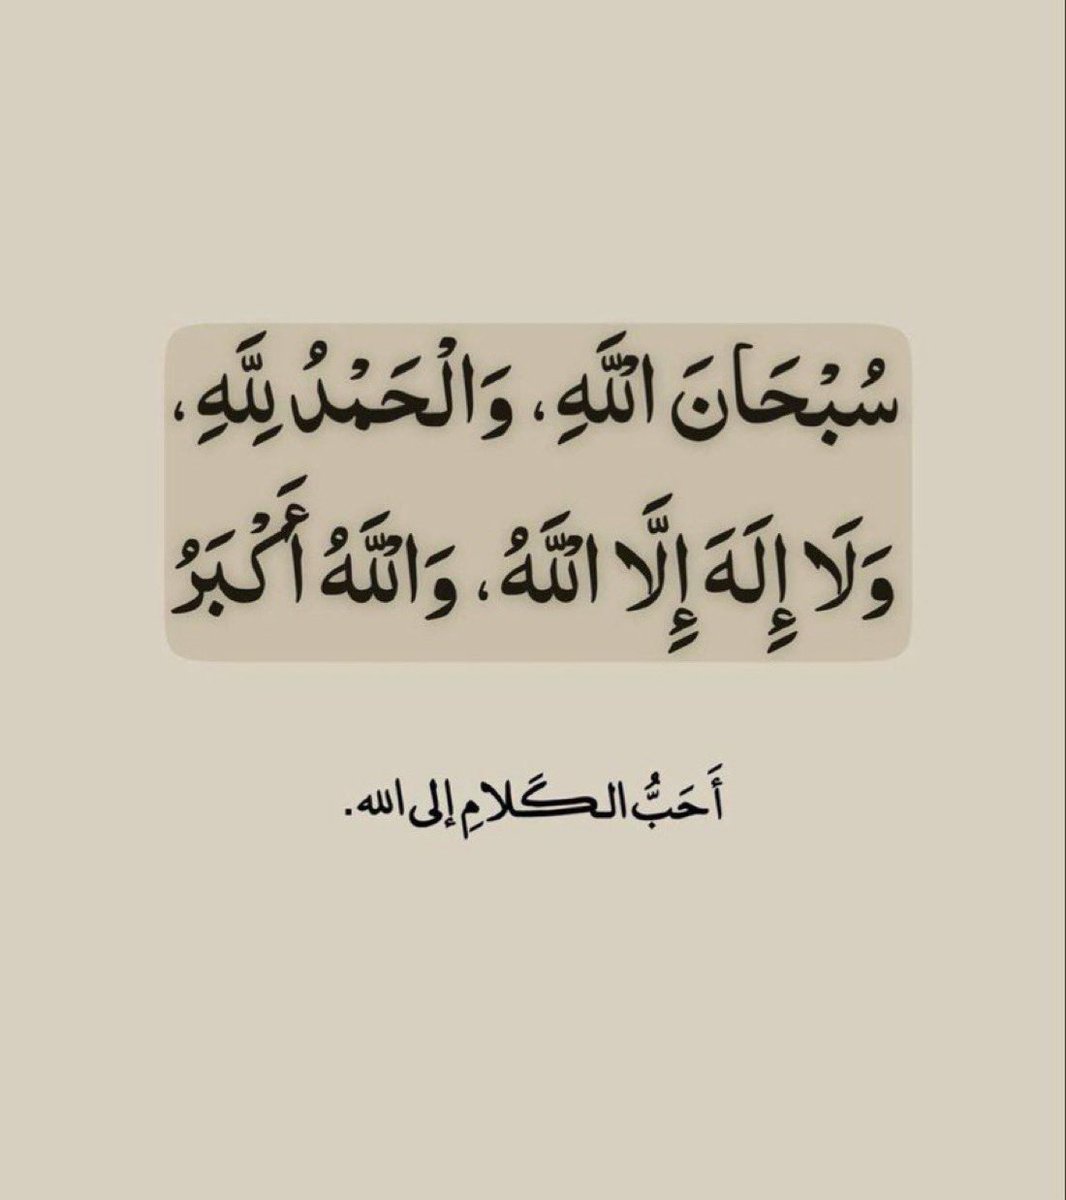 سُبْحَانَ اللَّهِ، وَالْحَمْدُ لِلَّهِ،
وَلَا إِلَهَ إِلَّا اللَّهُ، وَاللَّهُ أَكْبَرُ
أَحَبُّ الكَلامِ إلى الله.